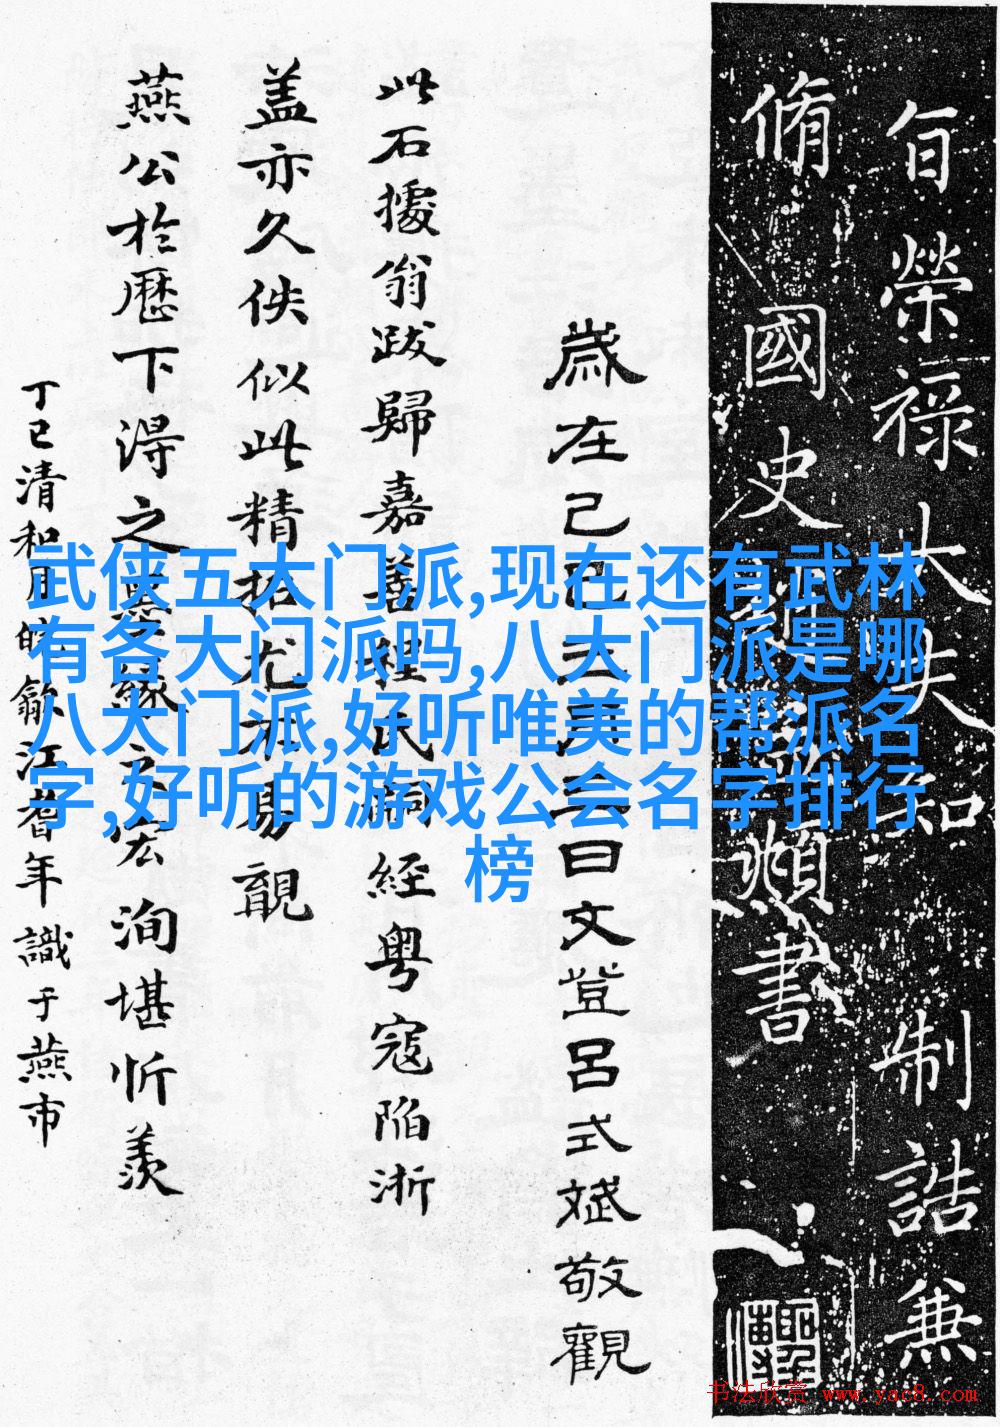 榮祿大夫知制誥兼
脩國史頫書
歲在己巳三月日文登呂式斌敬觀
此石據翁跋歸嘉善程氏嗣經粵寇陷浙
盖亦久佚似此精拓尤不易覯
燕公於歷下淂之墨緣之宏洵堪忻羨
丁巳清和月皖歙江耆年識于燕市
武侠五大门派,现在还有武林
有各大门派吗,八大门派是哪
八大门派,好听唯美的帮派名
字,好听的游戏公会名字排行
榜
书法欣赏 www.yac8.com